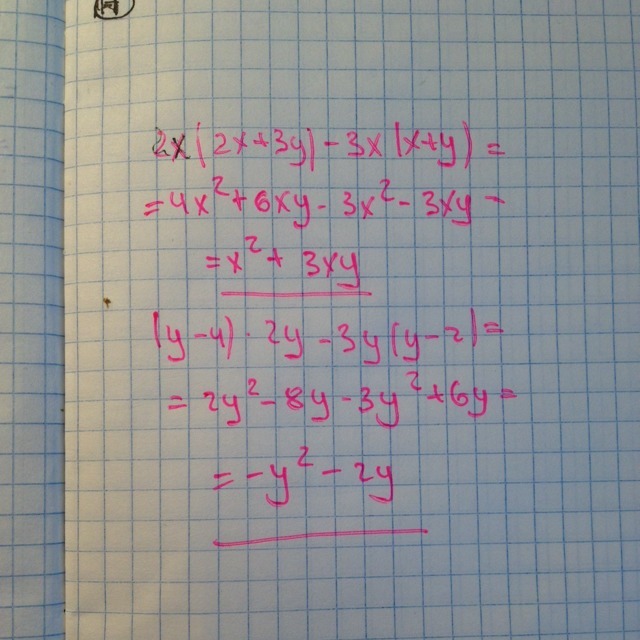 2x(2x+3y)-3x(x+y)=
=4x²+6xy-3x²-3xy=
=x²+3xy
(y-4)·2y-3y(y-2)=
=2y²-8y-3y²+6y=
=-y²-2y